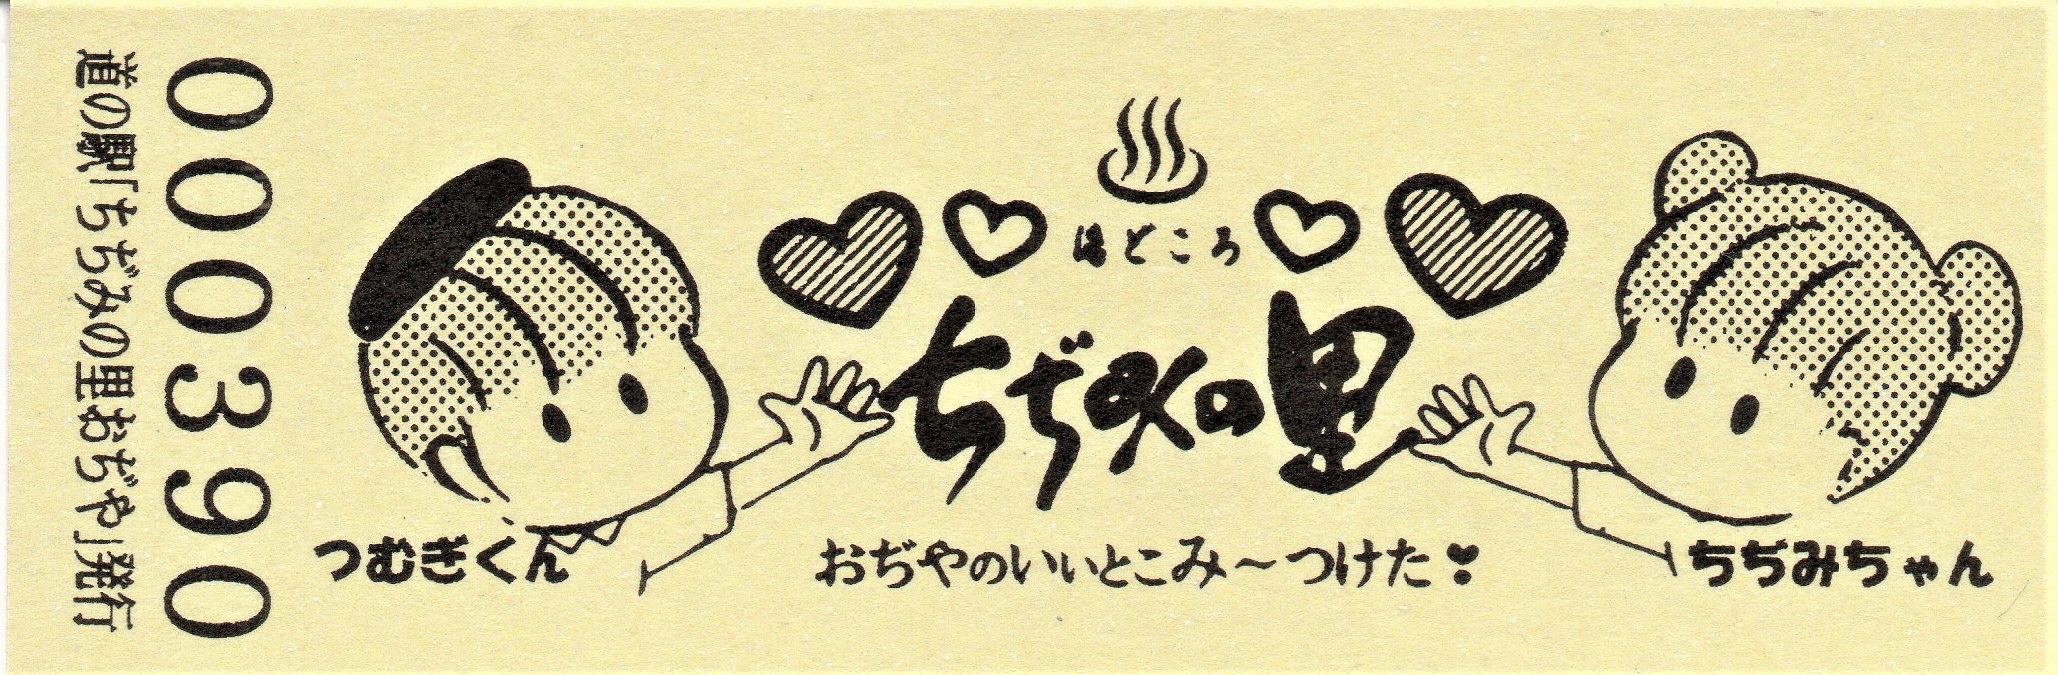 000390
道の駅「ちぢみの里おぢや」発行
ほどころ
ちぢみの里
つむぎくん
おぢやのいいとこみ～つけた❣
ちぢみちゃん